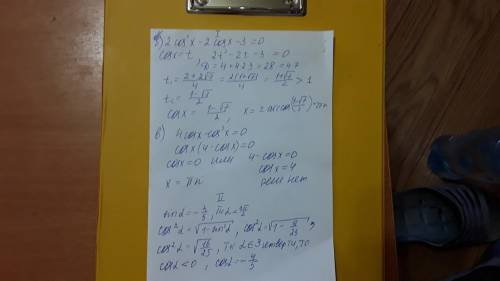 I
б) 2 cos²x - 2 cosx - 3 = 0
cosx = t 2t² - 2t - 3 = 0
D = 4 + 4·2·3 = 28 = 4·7
t₁ = (2+2√7)/4 = 2(1+√7)/4 = (1+√7)/2 > 1
t₂ = (1-√7)/2
cosx = (1-√7)/2, x = ± arccos((1-√7)/2) + 2πn
в) 4cosx - cos²x = 0
cosx(4 - cosx) = 0
cosx = 0 или 4 - cosx = 0
cosx = 4
x = πn реш нет
II
sinα = -3/5, π<α<3π/2
cos²α = √(1-sin²α), cos²α = √(1-9/25),
cos²α = √(16/25), тк α ∈ 3 четверти, то
cosα < 0, cosα = -4/5